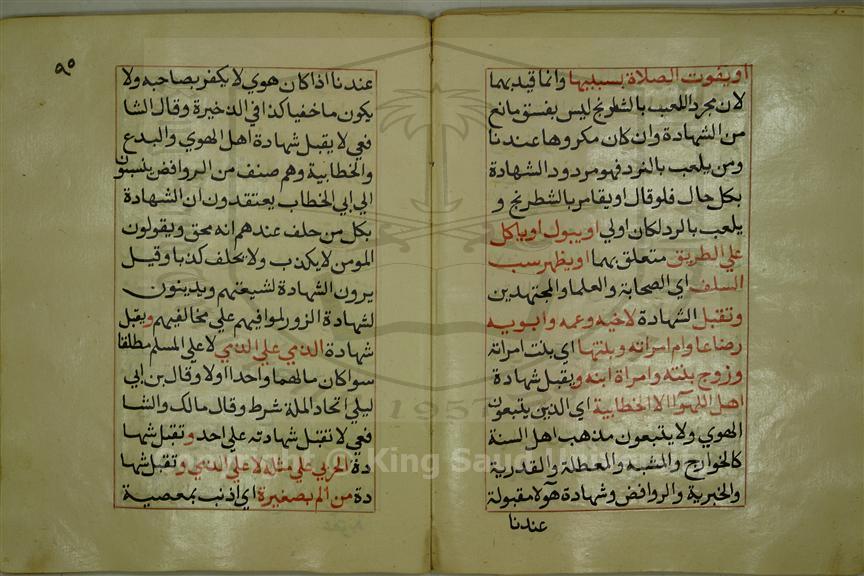 او يفوت الصلاة بسببها وانما قيد بهما
لان مجرد اللعب بالشطرنج ليس بفسق مانع
من الشهادة وان كان مكروها عندنا
ومن يلعب بالنرد فهو مردود الشهادة
بكل حال فلو قال او يقامر بالشطرنج و
يلعب بالرد لكان اولي او يبول او ياكل
علي الطريق متعلق بهما او يظهر سب
السلف اي الصحابة والعلما والمجتهدين
وتقبل الشهادة لاخيه وعمه وابويه
رضاعا وام امراته وبنتها اي بنت امراته
وزوج بنته وامراة ابنه ويقبل شهادة
اهل الهوآ الا الخطابية اي الذين يتبعون
الهوي ولا يتبعون مذهب اهل السنة
كالخوارج والمشبه والعطلة والقدرية
والخبرية والروافض وشهادة هولا مقبولة
عندنا
٩٥
عندنا اذا كان هوي لا يكفر بصاحبه ولا
يكون ماخفيا كذا في الذخيرة وقال الشا
فعي لا يقبل شهادة اهل الهوي والبدع
والخطابية وهم صنف من الروافض ينسبون
الي ابي الخطاب يعتقدون ان الشهادة
بكل من حلف عندهم انه محق ويقولون
المومن لا يكذب ولا يحلف كذبا وقيل
يرون الشهادة لشيعتهم ويدينون
لشهادة الزور لموافيهم علي مخالفيهم ويقبل
شهادة الذمي علي الذمي لا علي المسلم مطلقا
سوا كان مالهما واحدا اولا وقال بن ابي
ليلي اتحاد الملة شرط وقال مالك والشا
فعي لا تقبل شهادته علي احد وتقبل شها
دة الحربي علي مثله لا علي الذمي وتقبل شها
دة من الم بصغيرة اي اذنب بمعصية
1957
copyright © King Saud University